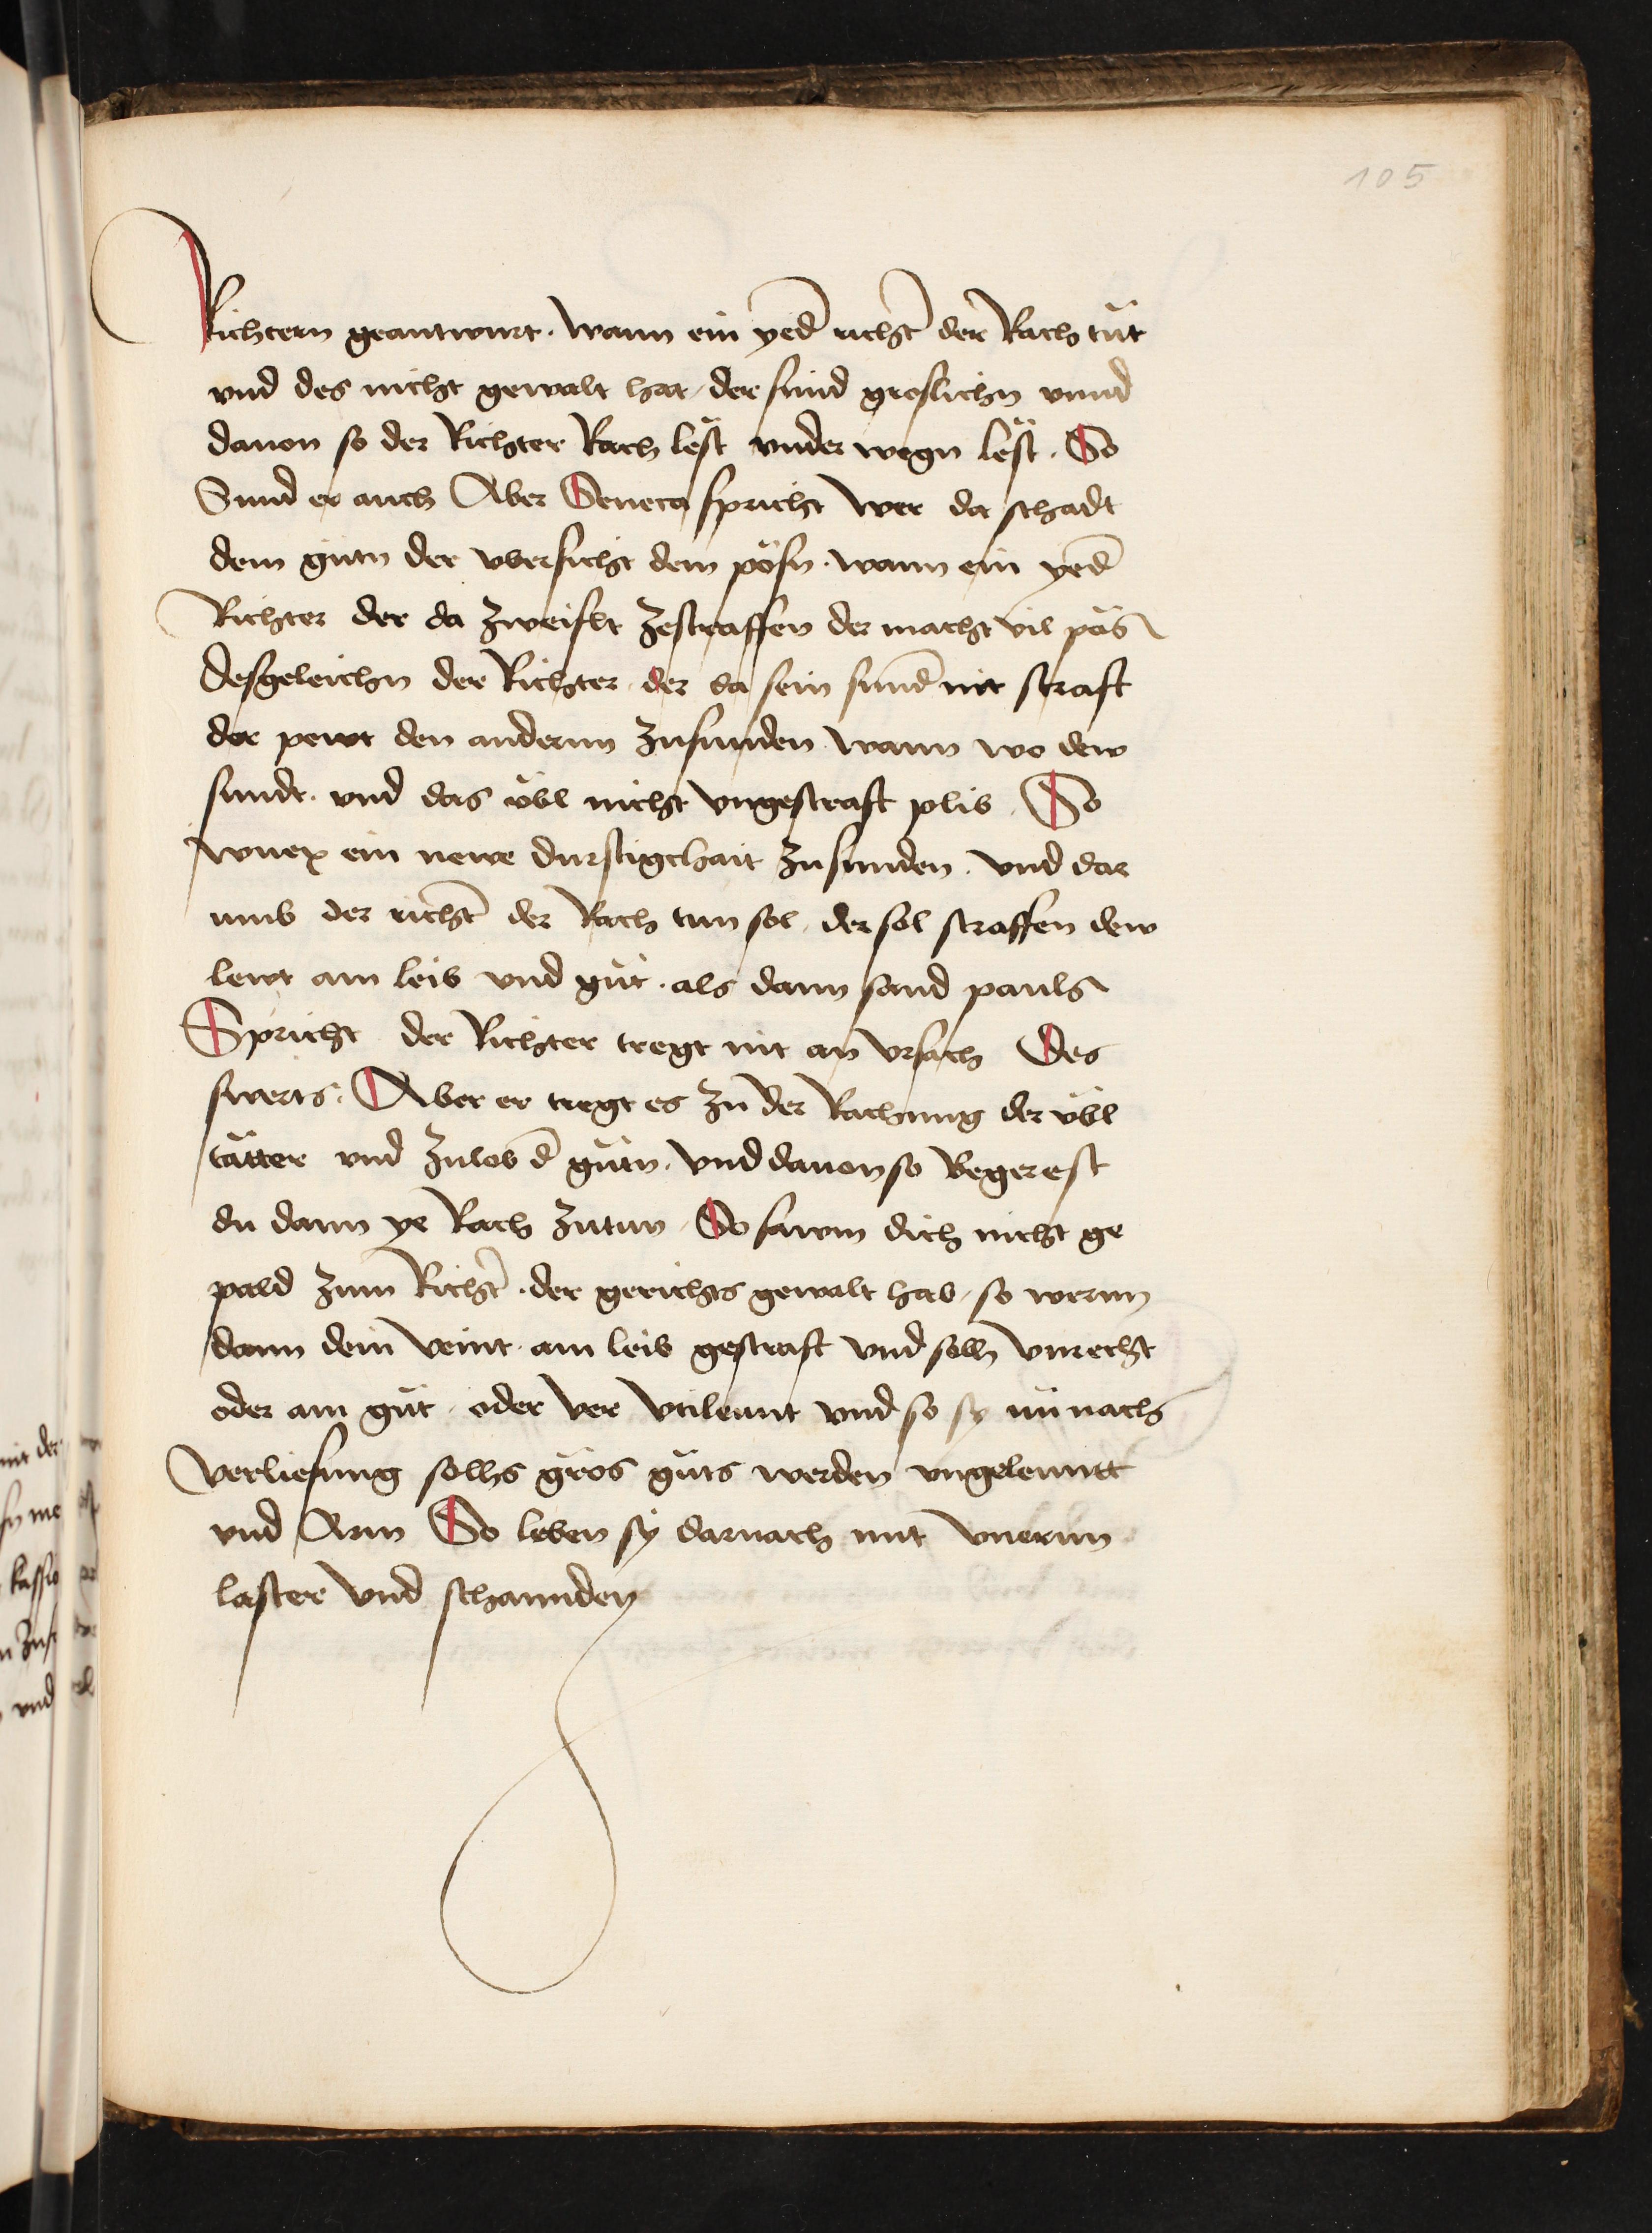 105
Richtern geantwurt · wann ein yed̄ richt̄ der Rach tůt
vnd des nicht gewalt hat / der sünd groslichn vnnd
dauon so der Richter Rach lest vnder wegn lest · So
Sund er auch Aber Seneca spricht wer da schadt
dem gutn der vbersicht dem pösn · wann ein yed̄
Richter der da zweiflt zestraffen der macht vil pös
desgeleichn der Richter · der da sein sund̄ nit straft
der pewt den andernn zusunden wann wo dew
sundt · vnd das übl nicht vngestraft plib · So
wuex ein newe durstigchait zu sunden · vnd dar
umb der richt̄ der Rach tun sol · der sol straffen dew
lewt am leib vnd gůt · als dann sand pauls
Spricht der Richter tregt nit an vrsach Des
swerts · Aber er tregt es zu der Rachnung der übl
tätter vnd zulob d̄ gůtn · vnd dauon so Begerest
du dann ye Rach zutun · So sawm dich nicht ge
pald zum Richt̄ · der gerichts gewalt hab / so wernn
dann dein veint · am leib gestraft vnd solh vnrecht
oder am gůt · oder ver vrtilennt vnd so sy nü nach
verliesung solhs gros gůts werden vngelenntt
vnd Arm So leben sÿ darnach mit vnernn
laster vnd schannden